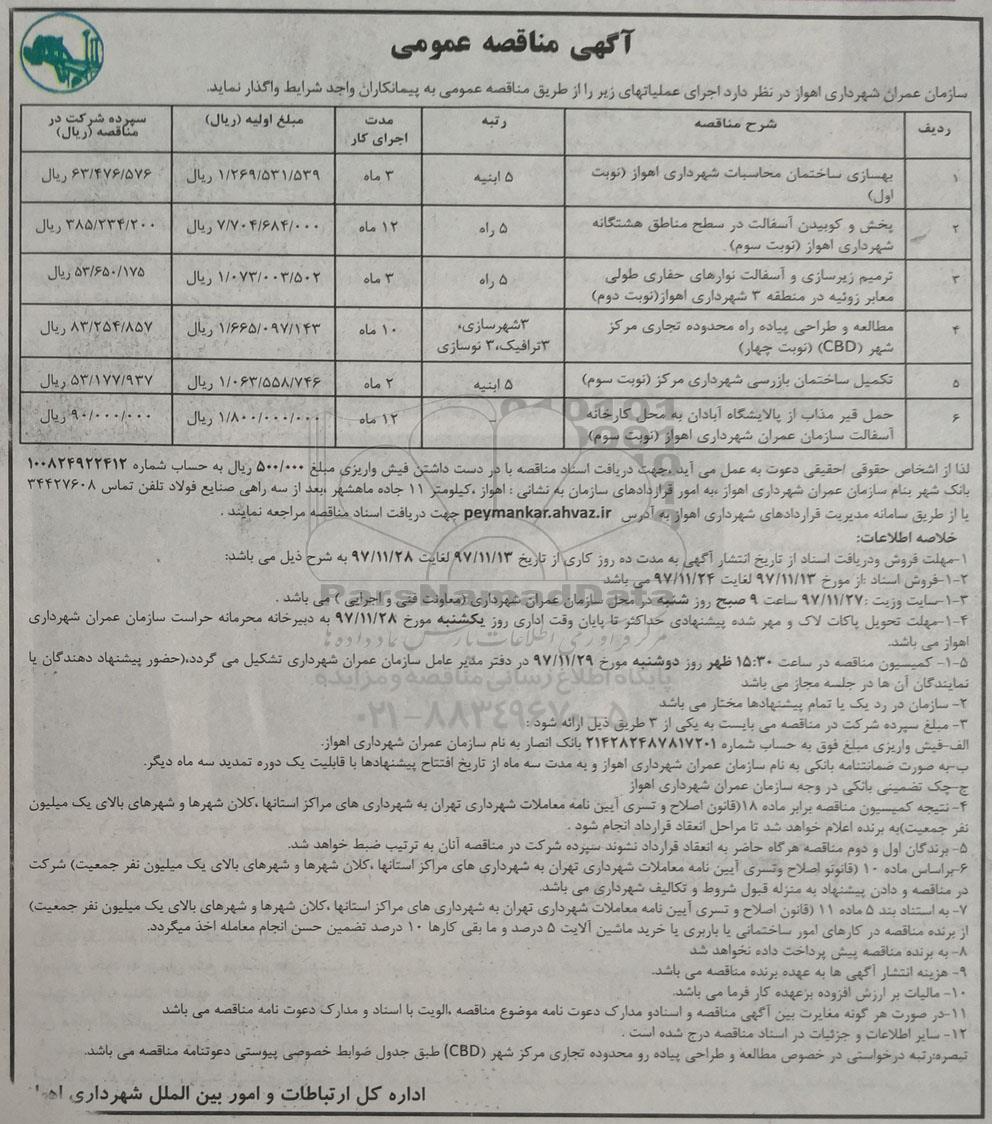 آگهی مناقصه عمومی
سازمان عمران شهرداری اهواز در نظر دارد اجرای عملیاتهای زیر را از طریق مناقصه عمومی به پیمانکاران واجد شرایط واگذار نماید.
ردیف شرح مناقصه رتبه مدت اجرای کار مبلغ اولیه (ریال) سپرده شرکت در مناقصه (ریال)
۱ بهسازی ساختمان محاسبات شهرداری اهواز (نوبت اول) ۵ ابنیه ۳ ماه ۱/۲۶۹/۵۳۱/۵۳۹ ریال ۶۳/۴۷۶/۵۷۶ ریال
۲ پخش و کوبیدن آسفالت در سطح مناطق هشتگانه شهرداری اهواز (نوبت سوم) ۵ راه ۱۲ ماه ۷/۷۰۴/۶۸۴/۰۰۰ ریال ۳۸۵/۲۳۴/۲۰۰ ریال
۳ ترمیم زیرسازی و آسفالت نوارهای حفاری طولی معابر زوئیه در منطقه ۳ شهرداری اهواز(نوبت دوم) ۵ راه ۳ ماه ۱/۰۷۳/۰۰۳/۵۰۲ ریال ۵۳/۶۵۰/۱۷۵ ریال
۴ مطالعه و طراحی پیاده راه محدوده تجاری مرکز شهر (CBD) (نوبت چهار) ۳شهرسازی، ۳ترافیک،۳ نوسازی ۱۰ ماه ۱/۶۶۵/۰۹۷/۱۴۳ ریال ۸۳/۲۵۴/۸۵۷ ریال
۵ تکمیل ساختمان بازرسی شهرداری مرکز (نوبت سوم) ۵ ابنیه ۲ ماه ۱/۰۶۳/۵۵۸/۷۴۶ ریال ۵۳/۱۷۷/۹۳۷ ریال
۶ حمل قیر مذاب از پالایشگاه آبادان به محل کارخانه آسفالت سازمان عمران شهرداری اهواز (نوبت سوم) – ۱۲ ماه ۱/۸۰۰/۰۰۰/۰۰۰ ریال ۹۰/۰۰۰/۰۰۰ ریال
لذا از اشخاص حقوقی /حقیقی دعوت به عمل می آید ،جهت دریافت اسناد مناقصه با در دست داشتن فیش واریزی مبلغ ۵۰۰/۰۰۰ ریال به حساب شماره ۱۰۰۸۲۴۹۲۲۴۱۲
بانک شهر بنام سازمان عمران شهرداری اهواز ،به امور قراردادهای سازمان به نشانی : اهواز ،کیلومتر ۱۱ جاده ماهشهر ،بعد از سه راهی صنایع فولاد تلفن تماس ۳۴۴۲۷۶۰۸
یا از طریق سامانه مدیریت قراردادهای شهرداری اهواز به آدرس peymankar.ahvaz.ir جهت دریافت اسناد مناقصه مراجعه نمایند .
خلاصه اطلاعات:
۱-مهلت فروش ودریافت اسناد از تاریخ انتشار آگهی به مدت ده روز کاری از تاریخ ۹۷/۱۱/۱۳ لغایت ۹۷/۱۱/۲۸ به شرح ذیل می باشد:
۱-۲-فروش اسناد :از مورخ ۹۷/۱۱/۱۳ لغایت ۹۷/۱۱/۲۴ می باشد
۱-۳-سایت وزیت :۹۷/۱۱/۲۷ ساعت ۹ صبح روز شنبه در محل سازمان عمران شهرداری (معاونت فنی و اجرایی ) می باشد .
۱-۴-مهلت تحویل پاکات لاک و مهر شده پیشنهادی حداکثر تا پایان وقت اداری روز یکشنبه مورخ ۹۷/۱۱/۲۸ به دبیرخانه محرمانه حراست سازمان عمران شهرداری
اهواز می باشد.
۱-۵- کمیسیون مناقصه در ساعت ۱۵:۳۰ ظهر روز دوشنبه مورخ ۹۷/۱۱/۲۹ در دفتر مدیر عامل سازمان عمران شهرداری تشکیل می گردد،(حضور پیشنهاد دهندگان یا
نمایندگان آن ها در جلسه مجاز می باشد
۲- سازمان در رد یک یا تمام پیشنهادها مختار می باشد
۳- مبلغ سپرده شرکت در مناقصه می بایست به یکی از ۳ طریق ذیل ارائه شود :
الف-فیش واریزی مبلغ فوق به حساب شماره ۲۱۴۲۸۲۴۸۷۸۱۷۲۰۱ بانک انصار به نام سازمان عمران شهرداری اهواز.
ب-به صورت ضمانتنامه بانکی به نام سازمان عمران شهرداری اهواز و به مدت سه ماه از تاریخ افتتاح پیشنهادها با قابلیت یک دوره تمدید سه ماه دیگر.
ج-چک تضمینی بانکی در وجه سازمان عمران شهرداری اهواز
۴- نتیجه کمیسیون مناقصه برابر ماده ۱۸(قانون اصلاح و تسری آیین نامه معاملات شهرداری تهران به شهرداری های مراکز استانها ،کلان شهرها و شهرهای بالای یک میلیون
نفر جمعیت)به برنده اعلام خواهد شد تا مراحل انعقاد قرارداد انجام شود .
۵- برندگان اول و دوم مناقصه هرگاه حاضر به انعقاد قرارداد نشوند سپرده شرکت در مناقصه آنان به ترتیب ضبط خواهد شد.
۶-براساس ماده ۱۰ (قانونو اصلاح وتسری آیین نامه معاملات شهرداری تهران به شهرداری های مراکز استانها ،کلان شهرها و شهرهای بالای یک میلیون نفر جمعیت) شرکت
در مناقصه و دادن پیشنهاد به منزله قبول شروط و تکالیف شهرداری می باشد.
۷- به استناد بند ۵ ماده ۱۱ (قانون اصلاح و تسری آیین نامه معاملات شهرداری تهران به شهرداری های مراکز استانها ،کلان شهرها و شهرهای بالای یک میلیون نفر جمعیت)
از برنده مناقصه در کارهای امور ساختمانی یا باربری یا خرید ماشین آلایت ۵ درصد و ما بقی کارها ۱۰ درصد تضمین حسن انجام معامله اخذ میگردد.
۸- به برنده مناقصه پیش پرداخت داده نخواهد شد
۹- هزینه انتشار آگهی ها به عهده برنده مناقصه می باشد.
۱۰- مالیات بر ارزش افزوده برعهده کار فرما می باشد.
۱۱-در صورت هر گونه مغایرت بین آگهی مناقصه و اسنادو مدارک دعوت نامه موضوع مناقصه ،الویت با اسناد و مدارک دعوت نامه مناقصه می باشد
۱۲- سایر اطلاعات و جزئیات در اسناد مناقصه درج شده است .
تبصره:رتبه درخواستی در خصوص مطالعه و طراحی پیاده رو محدوده تجاری مرکز شهر (CBD) طبق جدول ضوابط خصوصی پیوستی دعوتنامه مناقصه می باشد.
اداره کل ارتباطات و امور بین الملل شهرداری اهواز
ParsNamadData
مرکز فرآوری اطلاعات پارس نماد داده ها
پایگاه اطلاع رسانی مناقصه و مزایده
۰۲۱-۸۸۳۴۹۶۷۰-۵